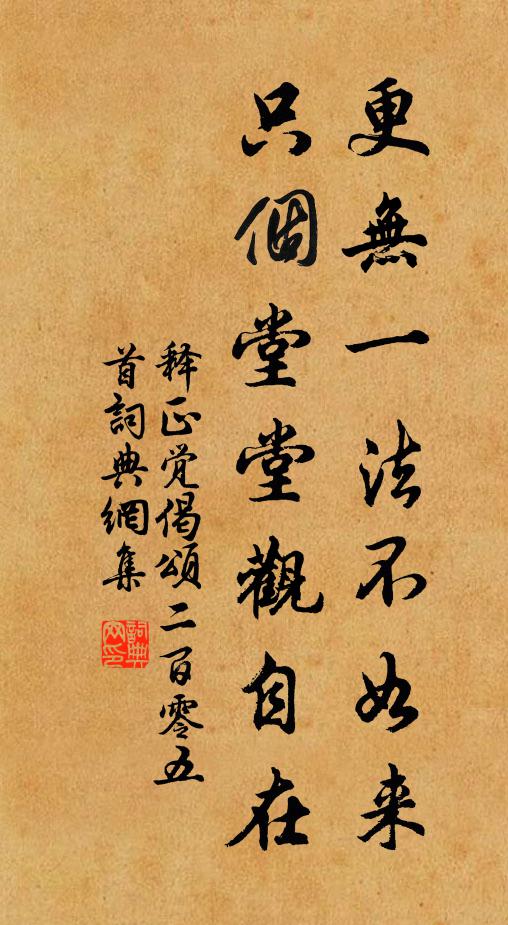 更無一法不如来
只個堂堂觀自在
释正觉偈頌二百零五
首詞典網集
詞典
网印